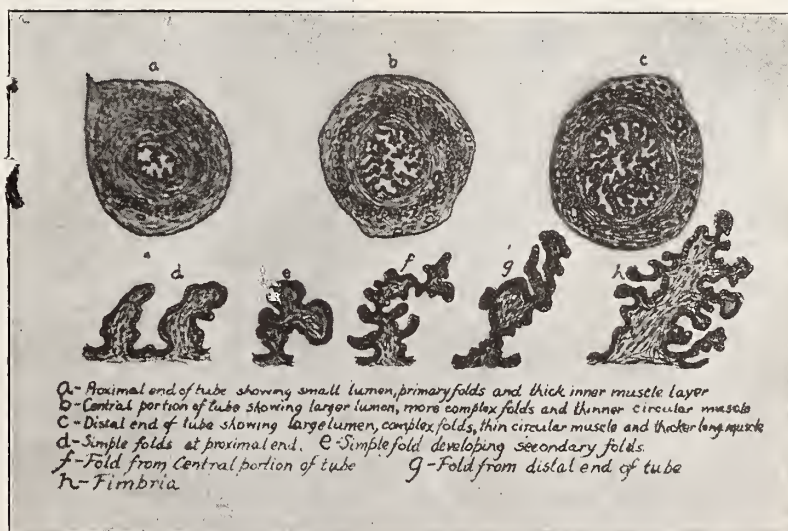 a b c
d e f g h
a- Proximal end of tube showing small lumen, primary folds and thick inner muscle layer
b- Central portion of tube showing larger lumen, more complex folds and thinner circular muscle
c- Distal end of tube showing large lumen, complex folds, thin circular muscle and thicker long. muscle
d- Simple folds at proximal end. e- Simple fold developing secondary folds.
f- Fold from Central portion of tube g- Fold from distal end of tube
h- Fimbria